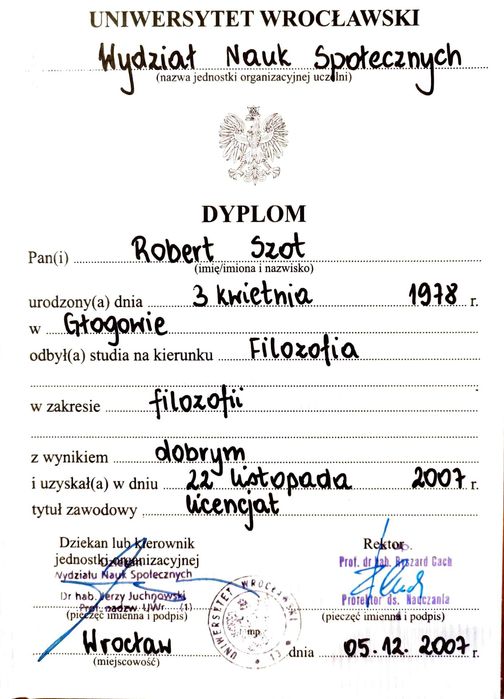 UNIWERSYTET WROCŁAWSKI
Wydział Nauk Społecznych
(nazwa jednostki organizacyjnej uczelni)
DYPLOM
Pan(i) Robert Szot
(imię/imiona i nazwisko)
urodzony(a) dnia 3 kwietnia 1978 r.
w Głogowie
odbył(a) studia na kierunku Filozofia
w zakresie filozofii
z wynikiem dobrym
i uzyskał(a) w dniu 22 listopada 2007 r.
tytuł zawodowy licencjat
Dziekan lub kierownik
jednostki organizacyjnej
Dziekan
Wydziału Nauk Społecznych
Dr hab. Jerzy Juchnowski
Prof. nadzw. UWr. (1)
(pieczęć imienna i podpis)
Rektor
Prof. dr hab. Ryszard Cach
Prorektor ds. Nauczania
(pieczęć imienna i podpis)
UNIWERSYTET WROCŁAWSKI
mp.
Wrocław dnia 05.12.2007 r.
(miejscowość)